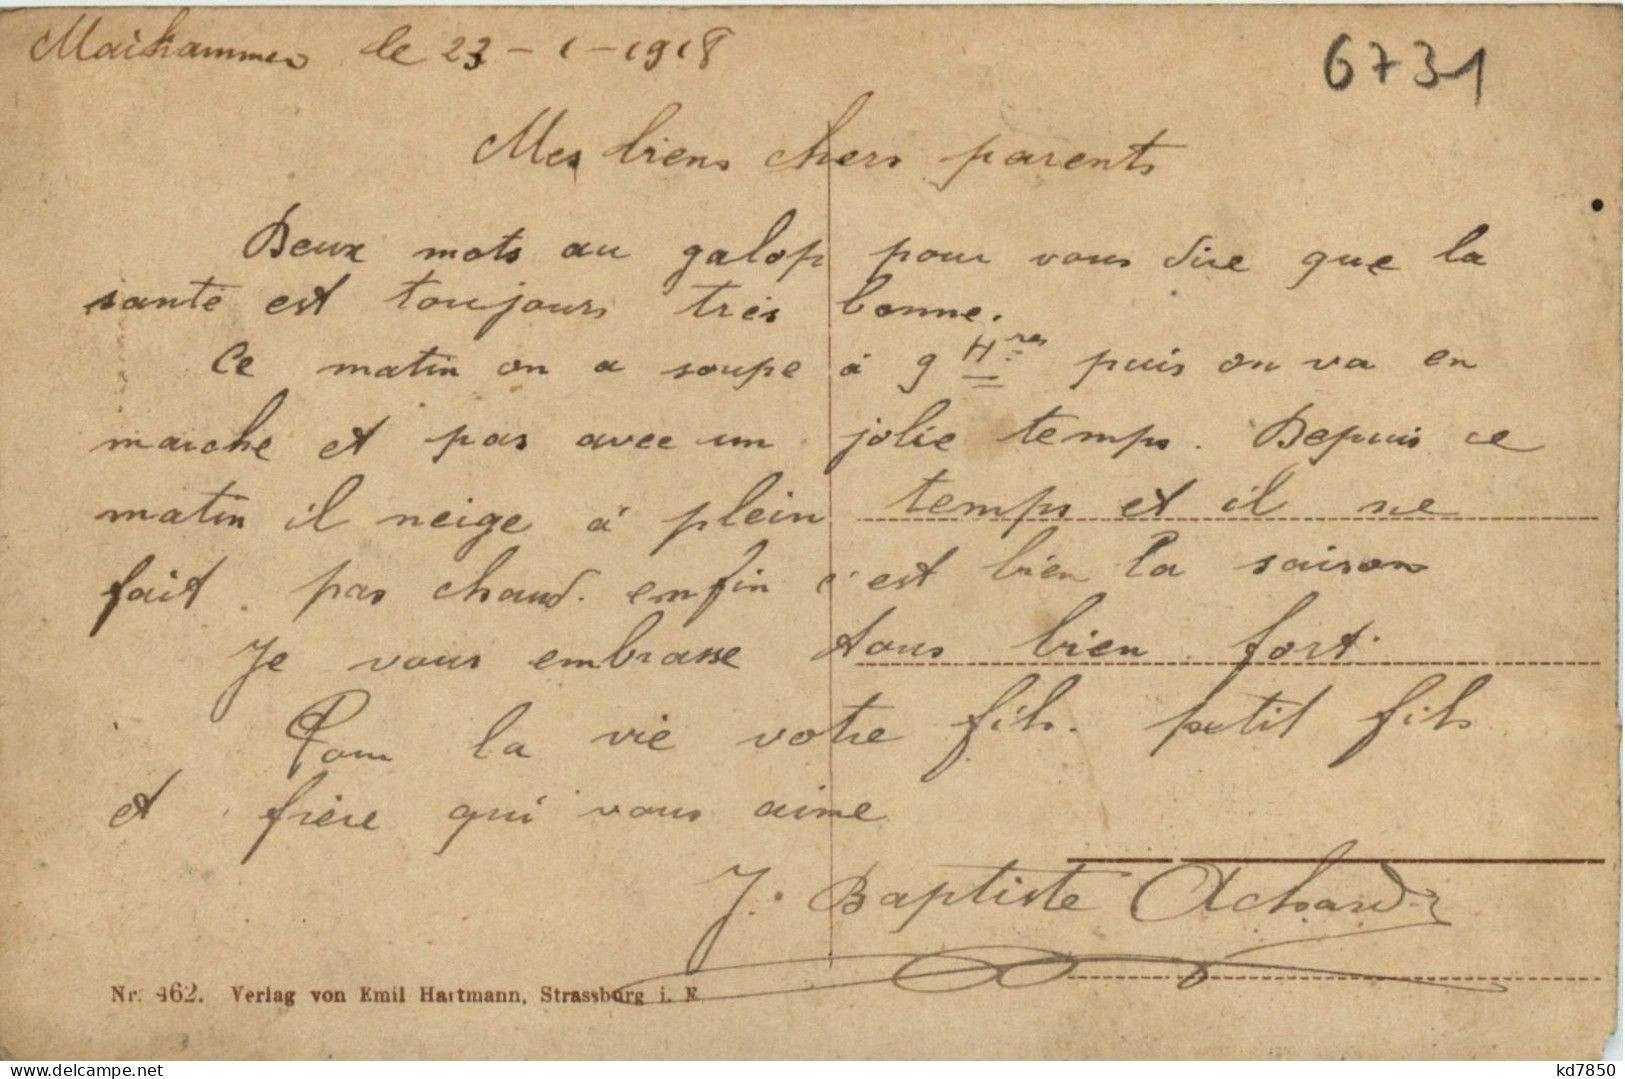 Maikammer le 23-1-1918
6731
Mes biens chers parents
Deux mots au galop pour vous dire que la
santé est toujours très bonne.
Ce matin on a soupe à 9 Hres puis on va en
marche et pas avec un jolie temps. Depuis ce
matin il neige à plein temps et il ne
fait pas chaud. enfin c'est bien la saison
Je vous embrasse tous bien fort.
Pour la vie votre fils. petit fils
et frère qui vous aime
J. Baptiste Achard
Nr. 462. Verlag von Emil Hartmann, Strassburg i. E
delcampe.net
kd7850